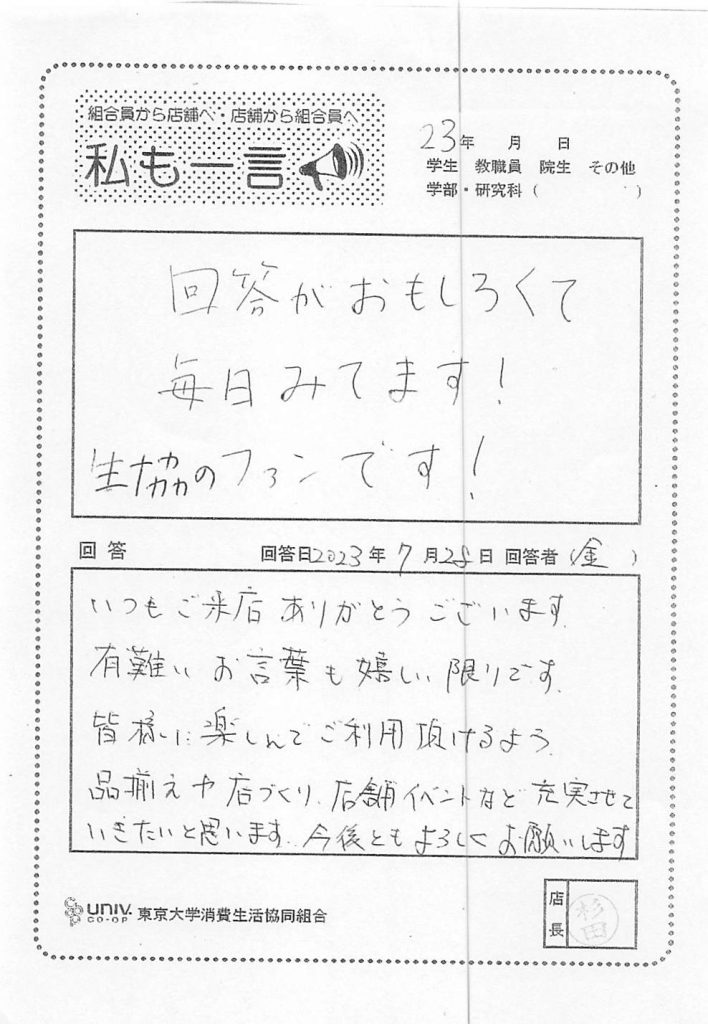 組合員から店舗へ・店舗から組合員へ
私も一言
23年 月 日
学生 教職員 院生 その他
学部・研究科( )
回答がおもしろくて
毎日みてます!
生協のファンです!
回答 回答日2023年7月28日 回答者(金)
いつもご来店ありがとうございます.
有難いお言葉も嬉しい限りです.
皆様に楽しんでご利用頂けるよう
品揃えや店づくり、店舗イベントなど充実させて
いきたいと思います. 今後ともよろしくお願いします
UNIV. CO-OP 東京大学消費生活協同組合
店長 杉田